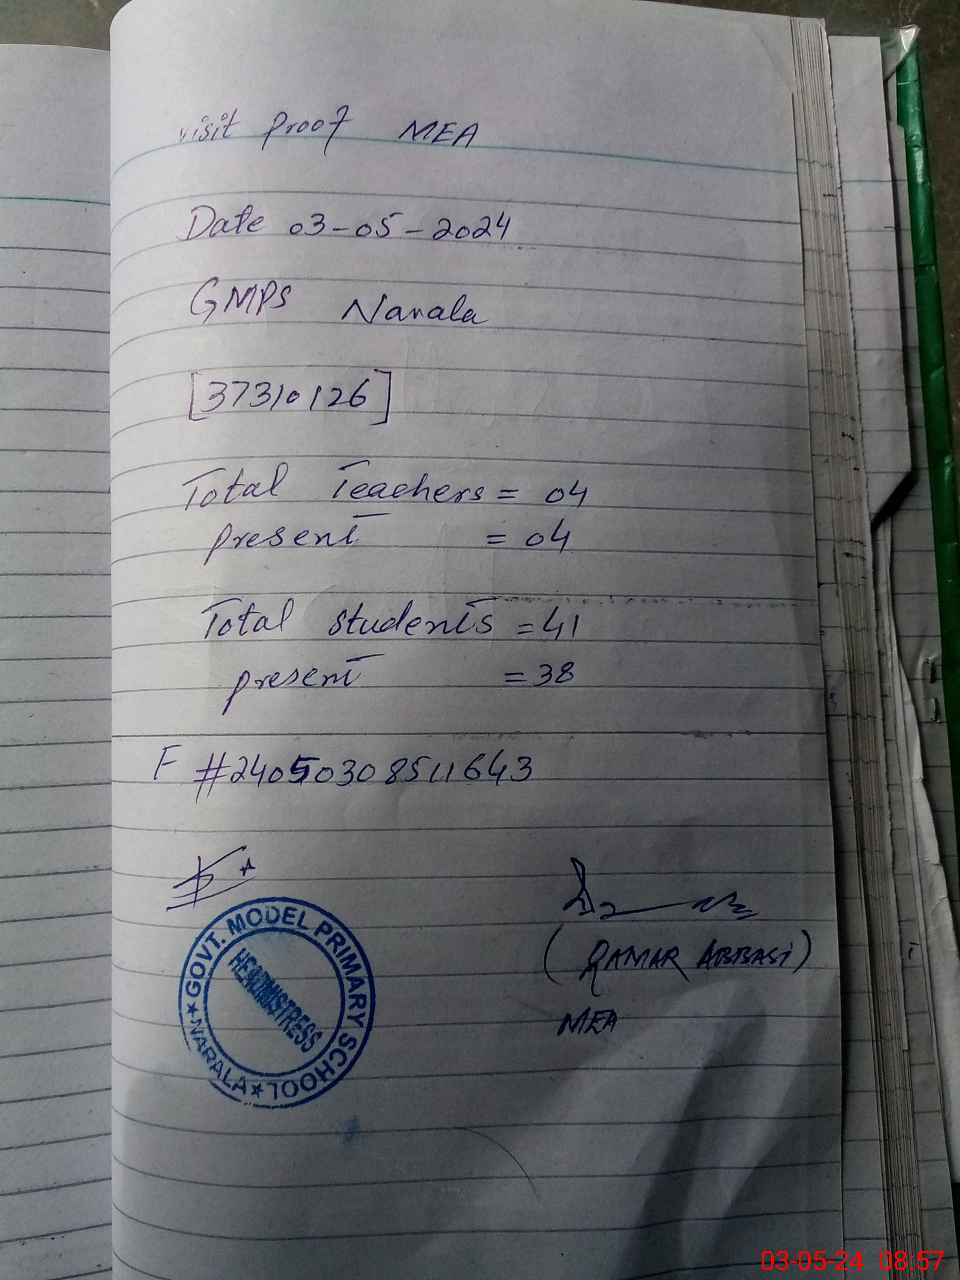 visit proof MEA
Date 03-05-2024
GMPS Narala
[37310126]
Total Teachers = 04
present = 04
Total students = 41
present = 38
F #24050308511643
GOVT. MODEL PRIMARY SCHOOL
HEADMISTRESS
★NARALA★
(QAMAR ABBASI)
MEA
03-05-24 08:57